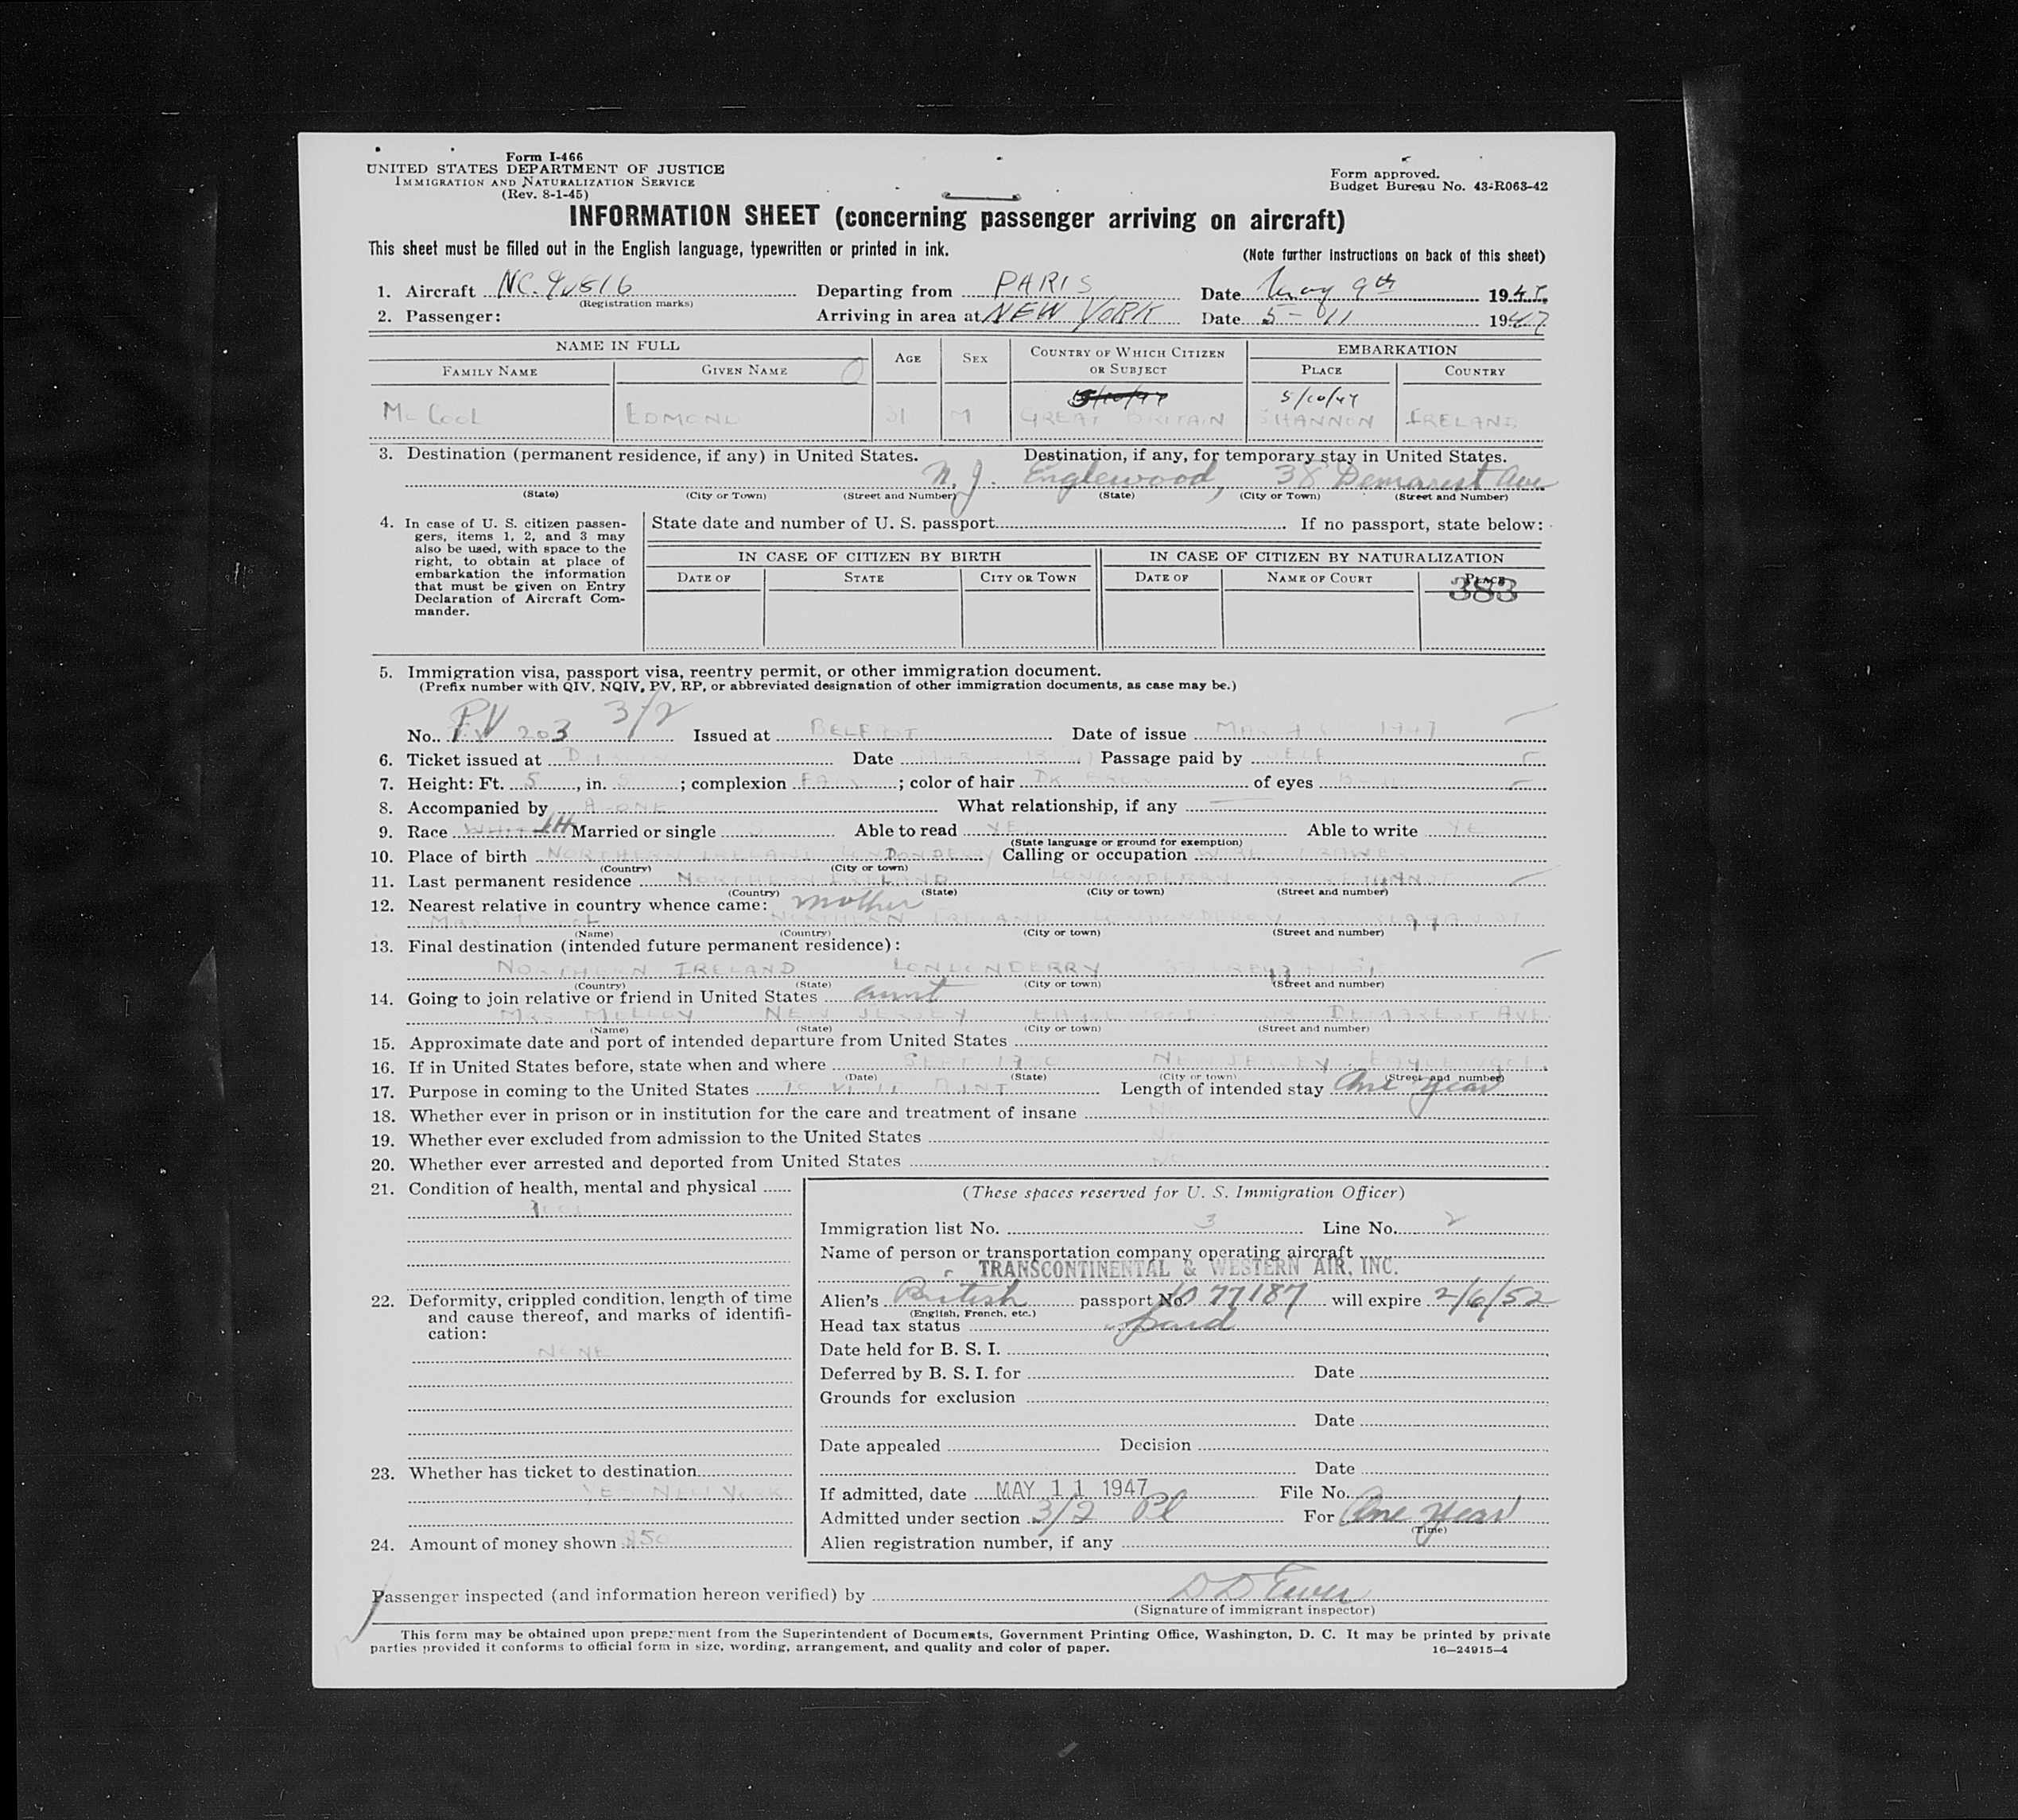 Form I-466
UNITED STATES DEPARTMENT OF JUSTICE
IMMIGRATION AND NATURALIZATION SERVICE
(Rev. 8-1-45)
Form approved.
Budget Bureau No. 43-R063-42
INFORMATION SHEET (concerning passenger arriving on aircraft)
This sheet must be filled out in the English language, typewritten or printed in ink.
(Note further instructions on back of this sheet)
1. Aircraft (Registration marks) Departing from PARIS Date May 9th 1947
2. Passenger: Arriving in area at NEW YORK Date 5-11 1947
NAME IN FULL AGE SEX COUNTRY OF WHICH CITIZEN OR SUBJECT EMBARKATION
FAMILY NAME GIVEN NAME PLACE COUNTRY
5/10/47 5/10/47
McCool EDMOND 31 M GREAT BRITAIN SHANNON IRELAND
3. Destination (permanent residence, if any) in United States. Destination, if any, for temporary stay in United States.
N.J. Englewood, 38 Demarest Ave
(State) (City or Town) (Street and Number) (State) (City or Town) (Street and Number)
4. In case of U. S. citizen passengers, items 1, 2, and 3 may also be used, with space to the right, to obtain at place of embarkation the information that must be given on Entry Declaration of Aircraft Commander.
State date and number of U. S. passport If no passport, state below:
IN CASE OF CITIZEN BY BIRTH IN CASE OF CITIZEN BY NATURALIZATION
DATE OF STATE CITY OR TOWN DATE OF NAME OF COURT PLACE
383
5. Immigration visa, passport visa, reentry permit, or other immigration document.
(Prefix number with QIV, NQIV, PV, RP, or abbreviated designation of other immigration documents, as case may be.)
No. PV 203 3/2 Issued at BELFAST Date of issue 1947
6. Ticket issued at DUBLIN Date Passage paid by SELF
7. Height: Ft. 5, in. ; complexion FAIR ; color of hair DK of eyes
8. Accompanied by ALONE What relationship, if any
9. Race Married or single Able to read YES Able to write YES
(State language or ground for exemption)
10. Place of birth NORTHERN IRELAND LONDONDERRY Calling or occupation
(Country) (City or town)
11. Last permanent residence NORTHERN IRELAND LONDONDERRY
(Country) (State) (City or town) (Street and number)
12. Nearest relative in country whence came: mother
NORTHERN IRELAND LONDONDERRY
(Name) (Country) (City or town) (Street and number)
13. Final destination (intended future permanent residence):
NORTHERN IRELAND LONDONDERRY
(Country) (State) (City or town) (Street and number)
14. Going to join relative or friend in United States aunt
MRS MOLLOY NEW JERSEY ENGLEWOOD DEMAREST AVE
(Name) (State) (City or town) (Street and number)
15. Approximate date and port of intended departure from United States
16. If in United States before, state when and where SEPT NEW JERSEY ENGLEWOOD
(Date) (State) (City or town) (Street and number)
17. Purpose in coming to the United States TO VISIT AUNT Length of intended stay One year
18. Whether ever in prison or in institution for the care and treatment of insane NO
19. Whether ever excluded from admission to the United States NO
20. Whether ever arrested and deported from United States NO
21. Condition of health, mental and physical
22. Deformity, crippled condition, length of time and cause thereof, and marks of identification:
NONE
23. Whether has ticket to destination
YES NEW YORK
24. Amount of money shown
(These spaces reserved for U. S. Immigration Officer)
Immigration list No. 3 Line No. 2
Name of person or transportation company operating aircraft
TRANSCONTINENTAL & WESTERN AIR, INC.
Alien's British passport No. 77187 will expire 2/6/52
(English, French, etc.)
Head tax status paid
Date held for B. S. I.
Deferred by B. S. I. for Date
Grounds for exclusion
Date
Date appealed Decision
Date
If admitted, date MAY 11 1947 File No.
Admitted under section 3/2 Pl For One year
(Time)
Alien registration number, if any
Passenger inspected (and information hereon verified) by
(Signature of immigrant inspector)
This form may be obtained upon prepayment from the Superintendent of Documents, Government Printing Office, Washington, D. C. It may be printed by private
parties provided it conforms to official form in size, wording, arrangement, and quality and color of paper. 16—24915-4